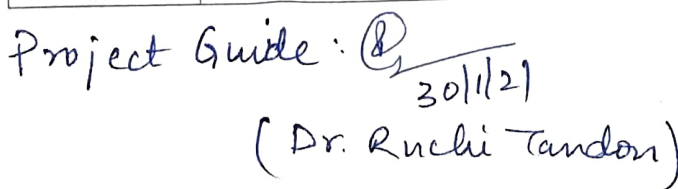 Project Guide :
30/1/21
(Dr. Ruchi Tandon)